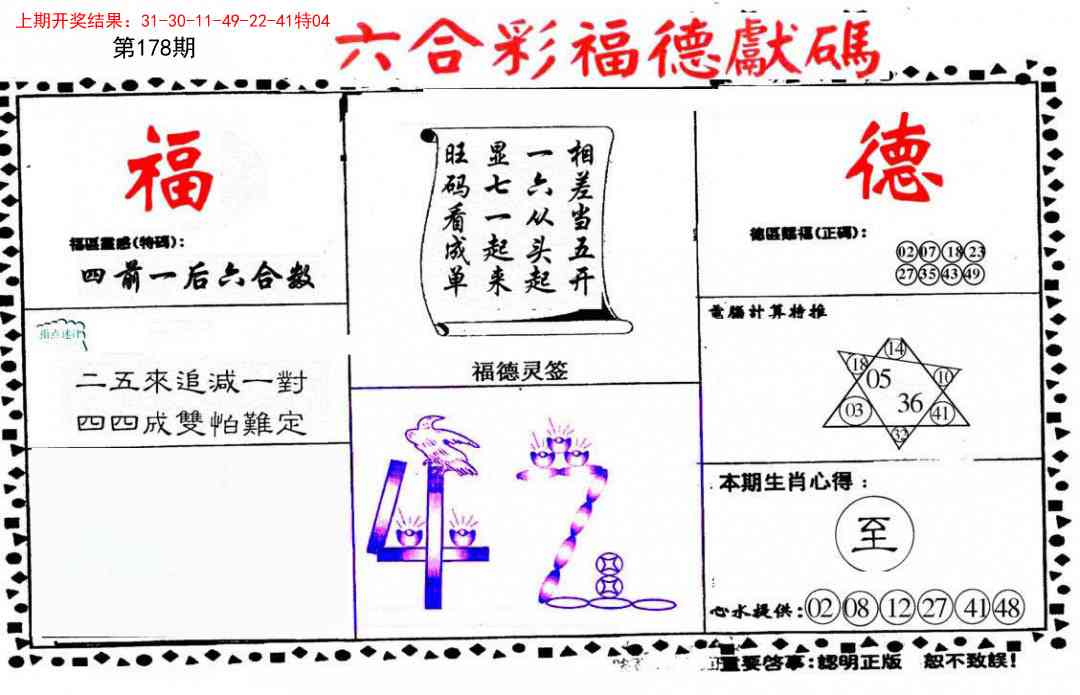 上期开奖结果：31-30-11-49-22-41特04
第178期
六合彩福德獻碼
福
福區靈感(特碼)：
四前一后六合数
指点迷津
二五來追減一對
四四成雙怕難定
相差当五开
一六从头起
显七一起来
旺码看成单
福德灵签
42
德
德區賜福(正碼)：
02 07 18 23
27 35 43 49
電腦計算特推
14
18 05 10
03 36 41
32
本期生肖心得：
至
心水提供：02 08 12 27 41 48
重要啓事：認明正版 恕不致誤！